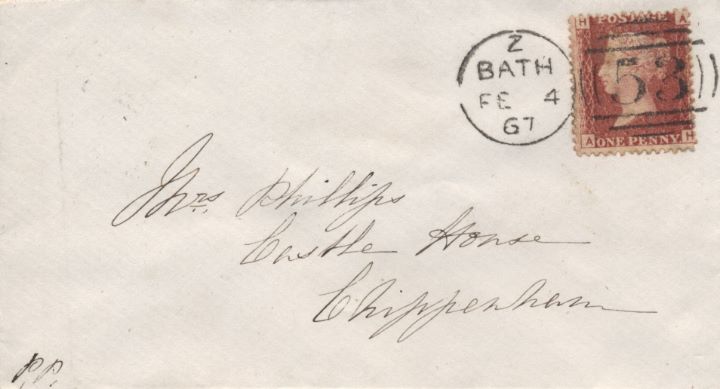 Z
BATH
FE 4
67
H POSTAGE A
53
A ONE PENNY H
Mrs. Phillips
Castle House
Chippenham
P.P.